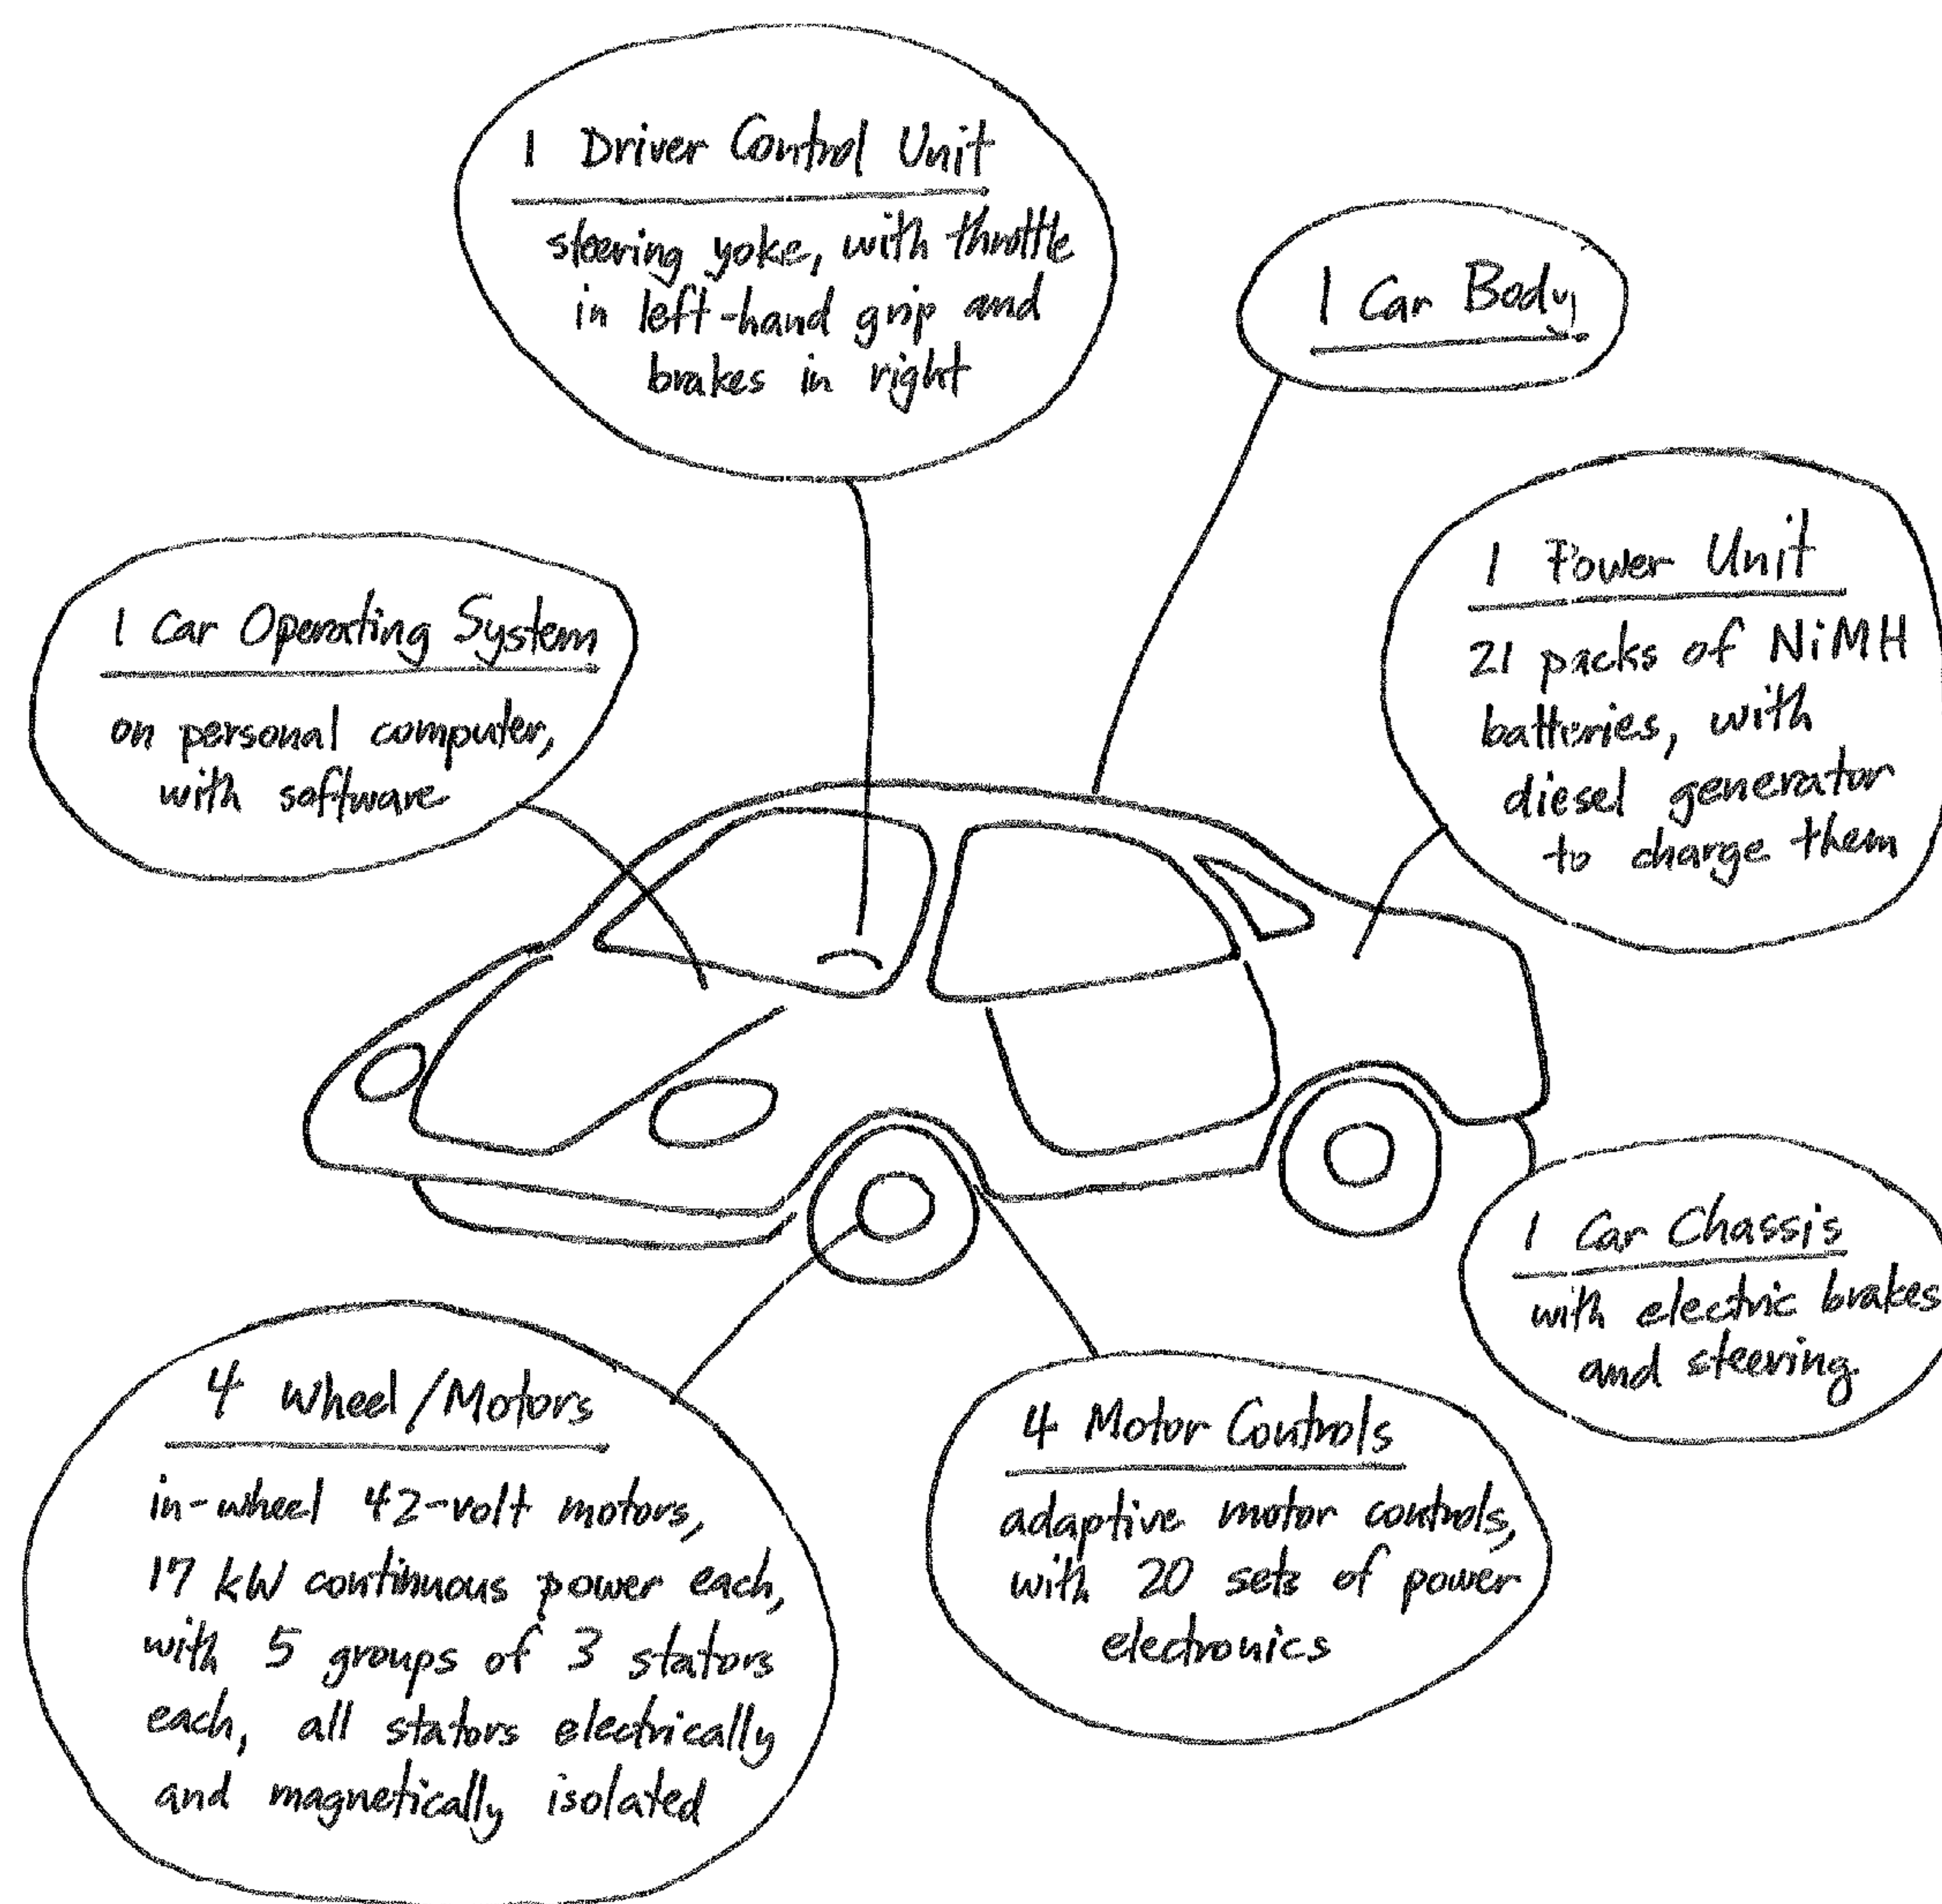 1 Driver Control Unit
steering yoke, with throttle
in left-hand grip and
brakes in right
1 Car Body
1 Car Operating System
on personal computer,
with software
1 Power Unit
21 packs of NiMH
batteries, with
diesel generator
to charge them
1 Car Chassis
with electric brakes
and steering
4 Wheel/Motors
in-wheel 42-volt motors,
17 kW continuous power each,
with 5 groups of 3 stators
each, all stators electrically
and magnetically isolated
4 Motor Controls
adaptive motor controls,
with 20 sets of power
electronics